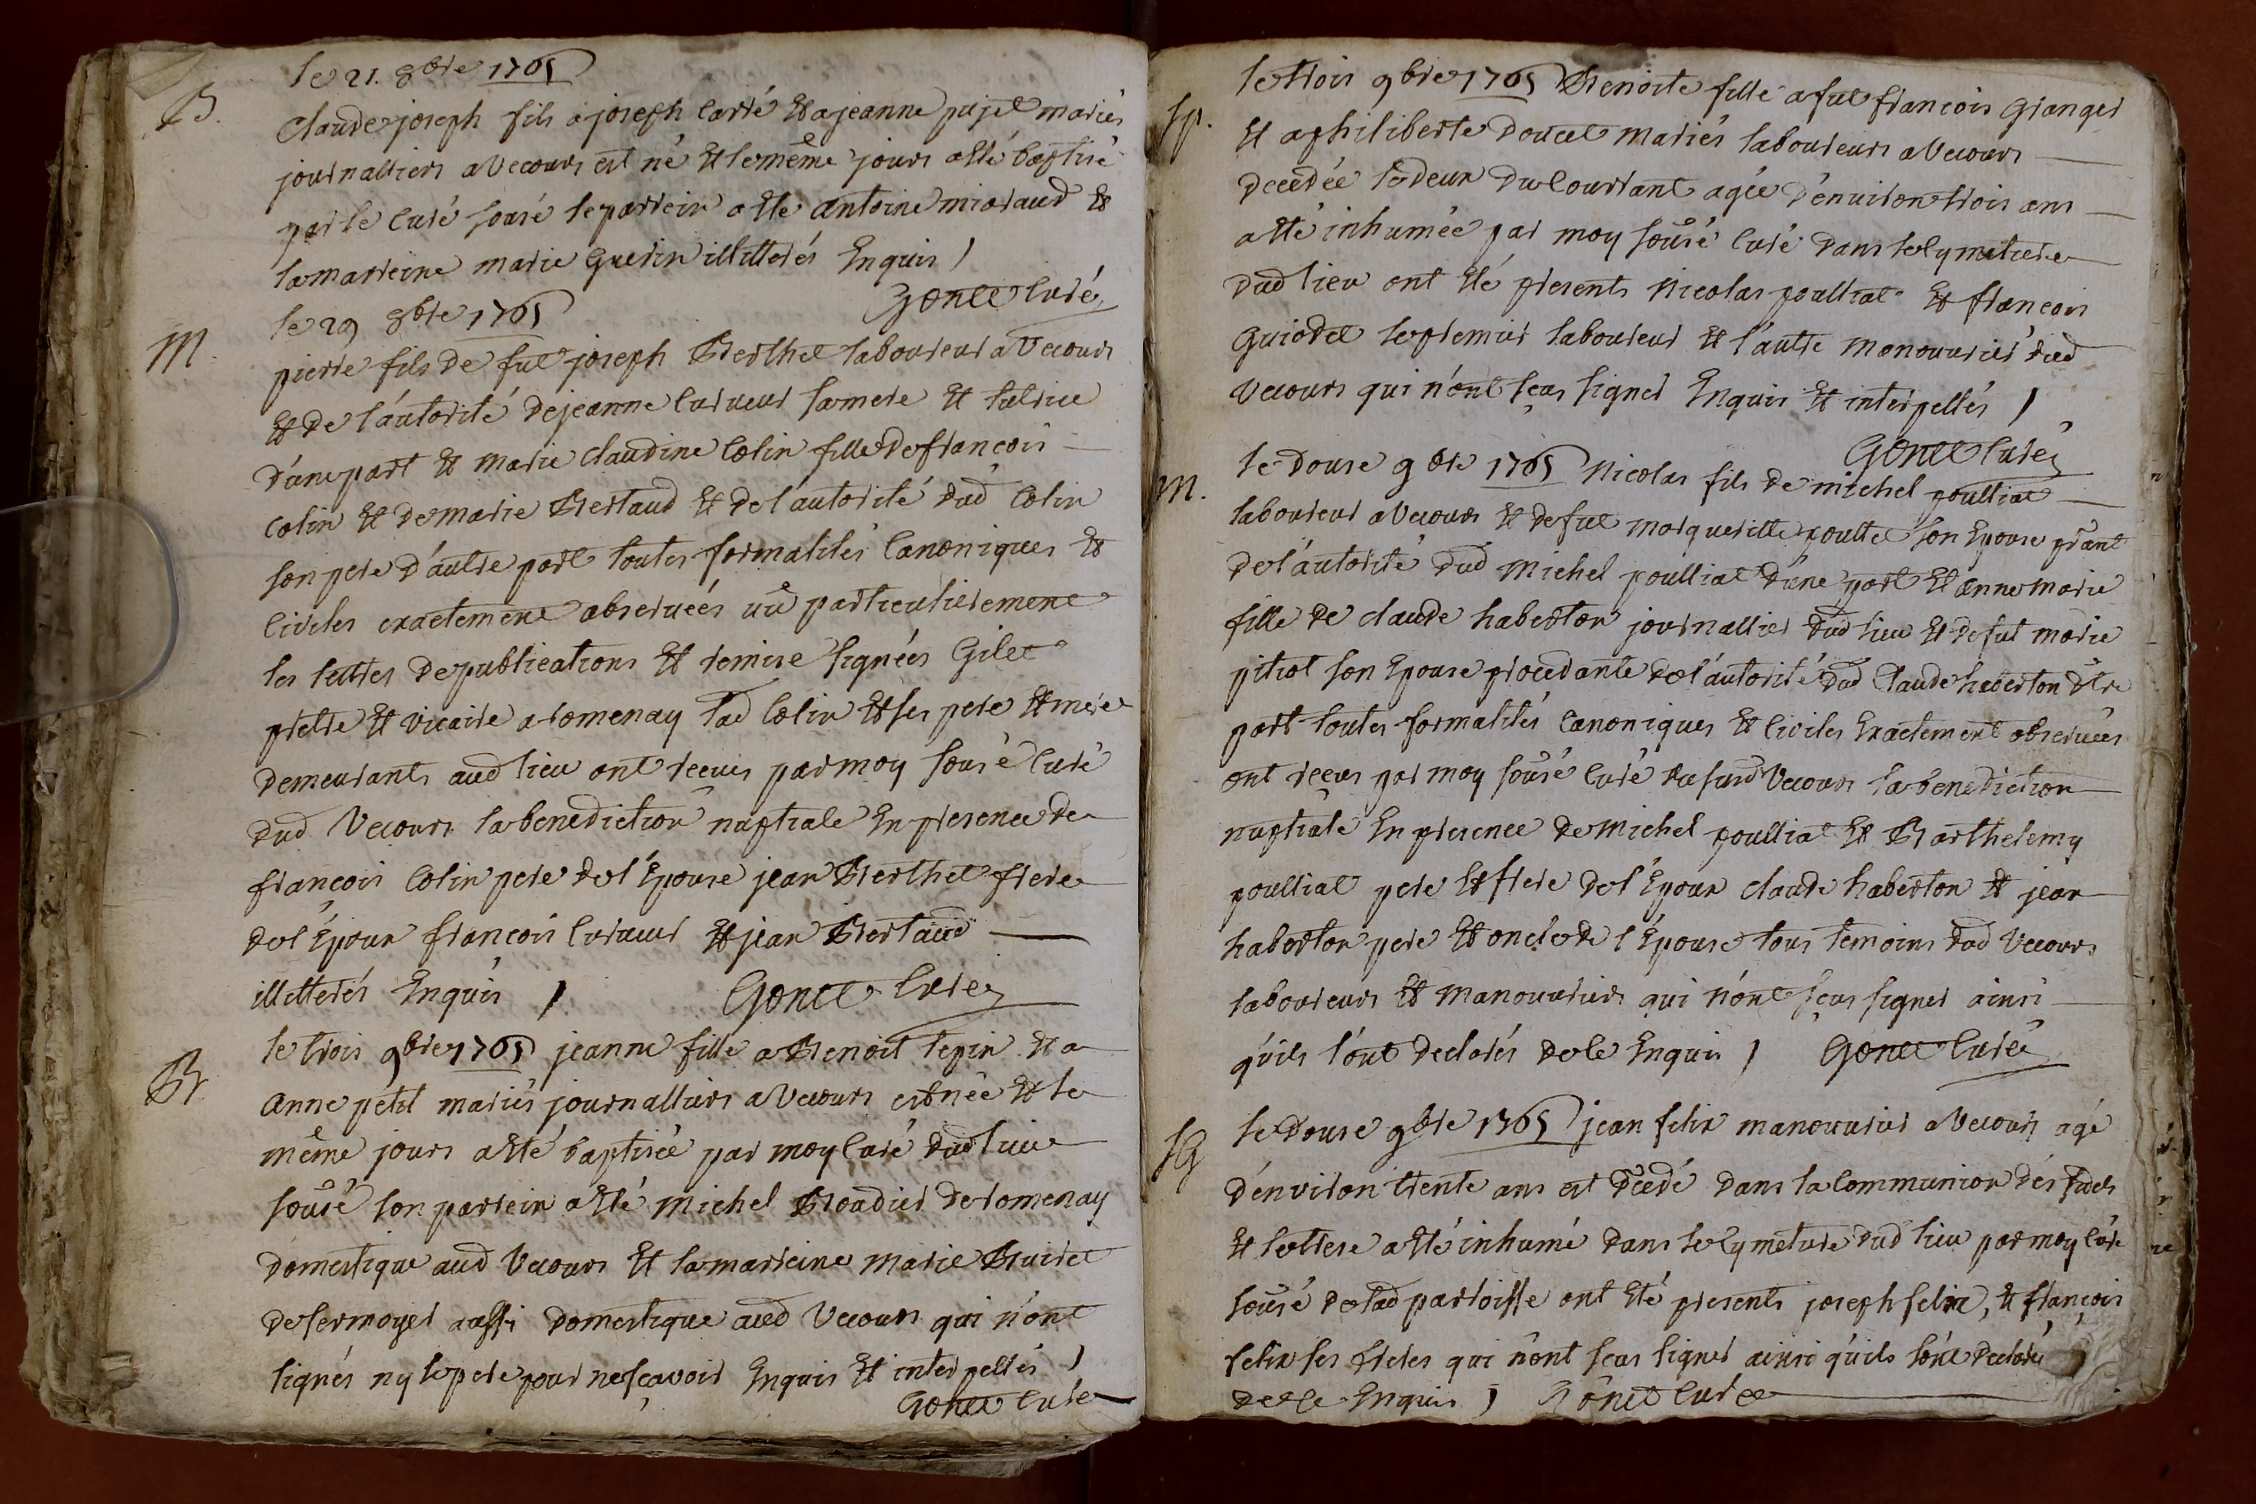 le 21. 8bre 1765
B.
Claude joseph fils a joseph Carré et a jeanne pujet mariés
journalliers a Vecours est né et le même jours a été baptisé
par le Curé sousé le parrein a été antoine miaraud et
la marreine marie Guerin illiterés Enquis
Gonet Curé
le 29 8bre 1765
M.
pierre fils de fut joseph Berthet laboureur a Vecours
et de l'autorité de jeanne Curveur sa mere et tutrice
d'une part et marie Claudine Colin fille de francois
Colin et de marie Bertaud et de l'autorité dud Colin
son pere d'autre part toutes formalités Canoniques et
Civiles exactement observeés vû particulierement
les lettres de publications et remise signeés Gilet
pretre et vicaire a romenay lad Colin et ses pere et mere
demeurants aud lieu ont recus par moy sousé Curé
dud Vecours la benediction nuptiale En presence de
francois Colin pere de l'Epouse jean Berthet frere
de l'Epoux francois Curveur et jean Bertaud
illetterés Enquis Gonet Curé
B.
le trois 9bre 1765 jeanne fille a Benoit tepin et a
anne petit mariés journalliers a Vecours est née et le
même jours a été baptisée par moy Curé dud lieu
sousé son parrein a été michel Broadier de romenay
domestique aud Vecours et la marreine marie Buiret
de sermoyer aussi domestique aud Vecours qui n'ont
signés ny le pere pour ne sçavoir Enquis et interpellés
Gonet Curé
sp.
le trois 9bre 1765 Benoite fille a fut francois Granger
et a philiberte Doucet mariés laboureurs a Vecours
decedée le deux du Courrant agée d'environ trois ans
a été inhumée par moy sousé Curé dans le Cymetiere
dud lieu ont été presents Nicolas poulliat et francois
Guiodet le premier laboureur et l'autre manouvrier dud
Vecours qui n'ont sçeus signer Enquis et interpellés
Gonet Curé
M.
le douse 9bre 1765 Nicolas fils de michel poulliat
laboureur a Vecours et de fut margueritte poulte son Epouse prant
de l'autorité dud michel poulliat d'une part et anne marie
fille de claude haberton journallier dud lieu et de fut marie
pitrat son Epouse procedante de l'autorité dud Claude haberton d'tre
part toutes formalités Canoniques et Civiles Exactement observées
ont recus par moy sousé Curé du susd Vecours la benediction
nuptiale En presence de michel poulliat et Barthelemy
poulliat pere et frere de l'Epoux claude haberton et jean
haberton pere et oncle de l'Epouse tous temoins dud Vecours
laboureurs et manouvriers qui n'ont sçeus signer ainsi
qu'ils l'ont declarés de ce Enquis Gonet Curé
sG
le douse 9bre 1765 jean felix manouvrier a Vecours agé
d'environ trente ans est decedé dans la Communion dés fidels
et le treze a été inhumé dans le Cymetiere dud lieu par moy Curé
sousé de lad parroisse ont été presents joseph felix, et françois
felix ses freres qui n'ont sçeus signer ainsi qu'ils l'ont declarés
de ce Enquis Gonet Curé